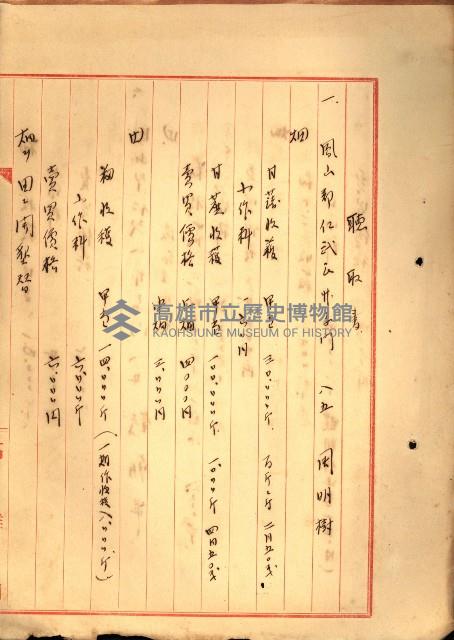 聽取書
一、鳳山郡仁武庄 八五 周明樹
畑
甘藷收穫 甲当 三〇、〇〇〇斤 百斤ニ付 二円五〇銭
小作料 一六〇円
甘蔗收穫 甲当 一〇〇、〇〇〇斤 四円五〇銭
賣買價格 上畑 四〇〇〇円
中畑 三、〇〇〇円
田
籾收穫 甲当 一四、〇〇〇斤（一期作收穫八、〇〇〇斤）
小作料 六、〇〇〇斤
賣買價格 六、〇〇〇円
畑ヲ田ニ開墾
高雄市立歷史博物館
KAOHSIUNG MUSEUM OF HISTORY